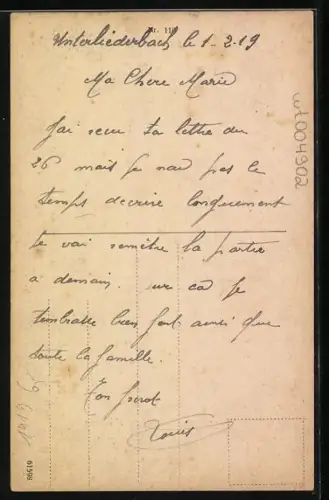 Nr. 11
Unterliederbach le 1-2.19
Ma Chere Marie
Jai recu ta lettre du
26 mais je nai pas le
temps decrire longuement
je vai remetre la partie
a demain. car je
tembrasse bien fort ainsi que
toute la famille.
Ton
Louis
wt004902
61598